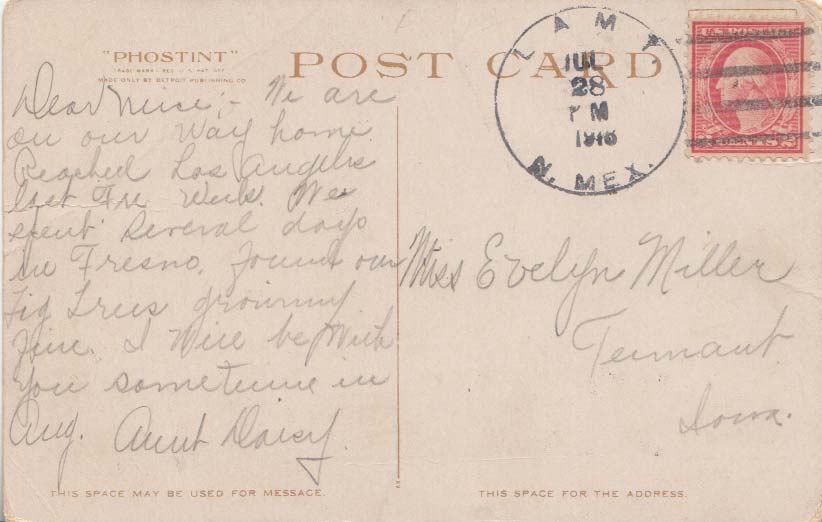 "PHOSTINT"
TRADE MARK - REG. U.S. PAT. OFF.
MADE ONLY BY DETROIT PUBLISHING CO.
POST CARD
LAMY
JUL
28
PM
1918
N. MEX.
U.S. POSTAGE
2 CENTS 2
Dear Niece,- We are
on our way home.
Reached Los Angeles
last Week. We
spent several days
in Fresno. found our
fig trees growing
fine. I will be with
you sometime in
Aug. Aunt Daisy.
Miss Evelyn Miller
Tennant
Iowa.
THIS SPACE MAY BE USED FOR MESSAGE.
THIS SPACE FOR THE ADDRESS.